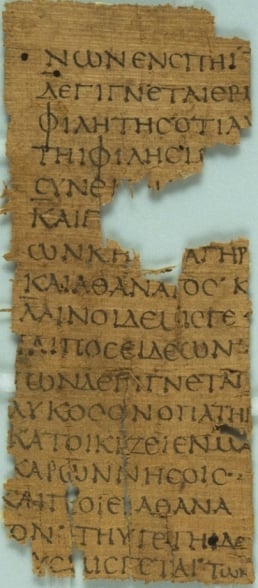 ΝΩΝΕΝϹΠΗΙ
ΔΕΓΙΓΝΕΤΑΙΕΡΜ
ΦΙΛΗΤΗϹΟΤΙΑΥ
ΤΗΙΦΙΛΗϹΙ
ϹΥΝΕ
ΚΑΙΓ
ΩΝΚΗ ΑΓΗΡ
ΚΑΙΑΘΑΝΑΤΟϹ Κ
ΛΑΙΝΟΙΔΕΜΙϹΓΕ
ΤΑΙΠΟϹΕΙΔΕΩΝ
ΤΩΝΔΕΓΙΓΝΕΤΑΙ
ΛΥΚΟϹΟΝΟΠΑΤΗΡ
ΚΑΤΟΙΚΙΖΕΙΕΝΜΑ
ΚΑΡΩΝΝΗϹΟΙϹ
ΚΑΙΠΟΙΕΙΑΘΑΝΑ
ΟΝ ΤΗΥΓΕΤΗΙΔΕ
ΥϹΜΙϹΓΕΤΑΙΤΩΝ